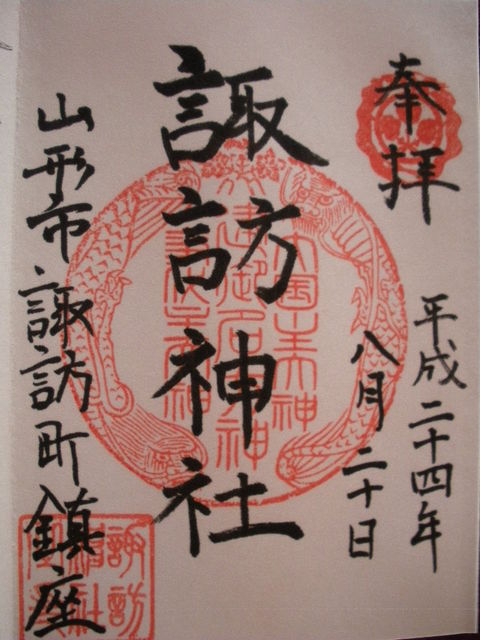 奉拝
平成二十四年
八月二十日
諏訪神社
山形市諏訪町鎮座